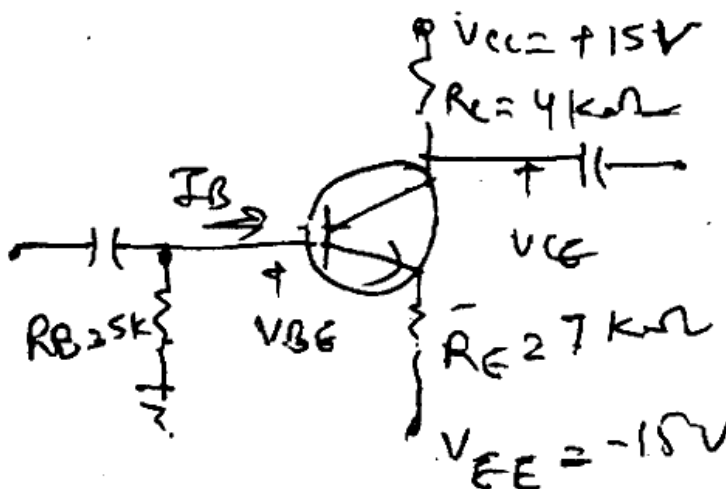 Vcc = +15V
Rc = 4 kΩ
IB
VCE
RB = 5k
VBE
RE = 7 kΩ
VEE = -15V